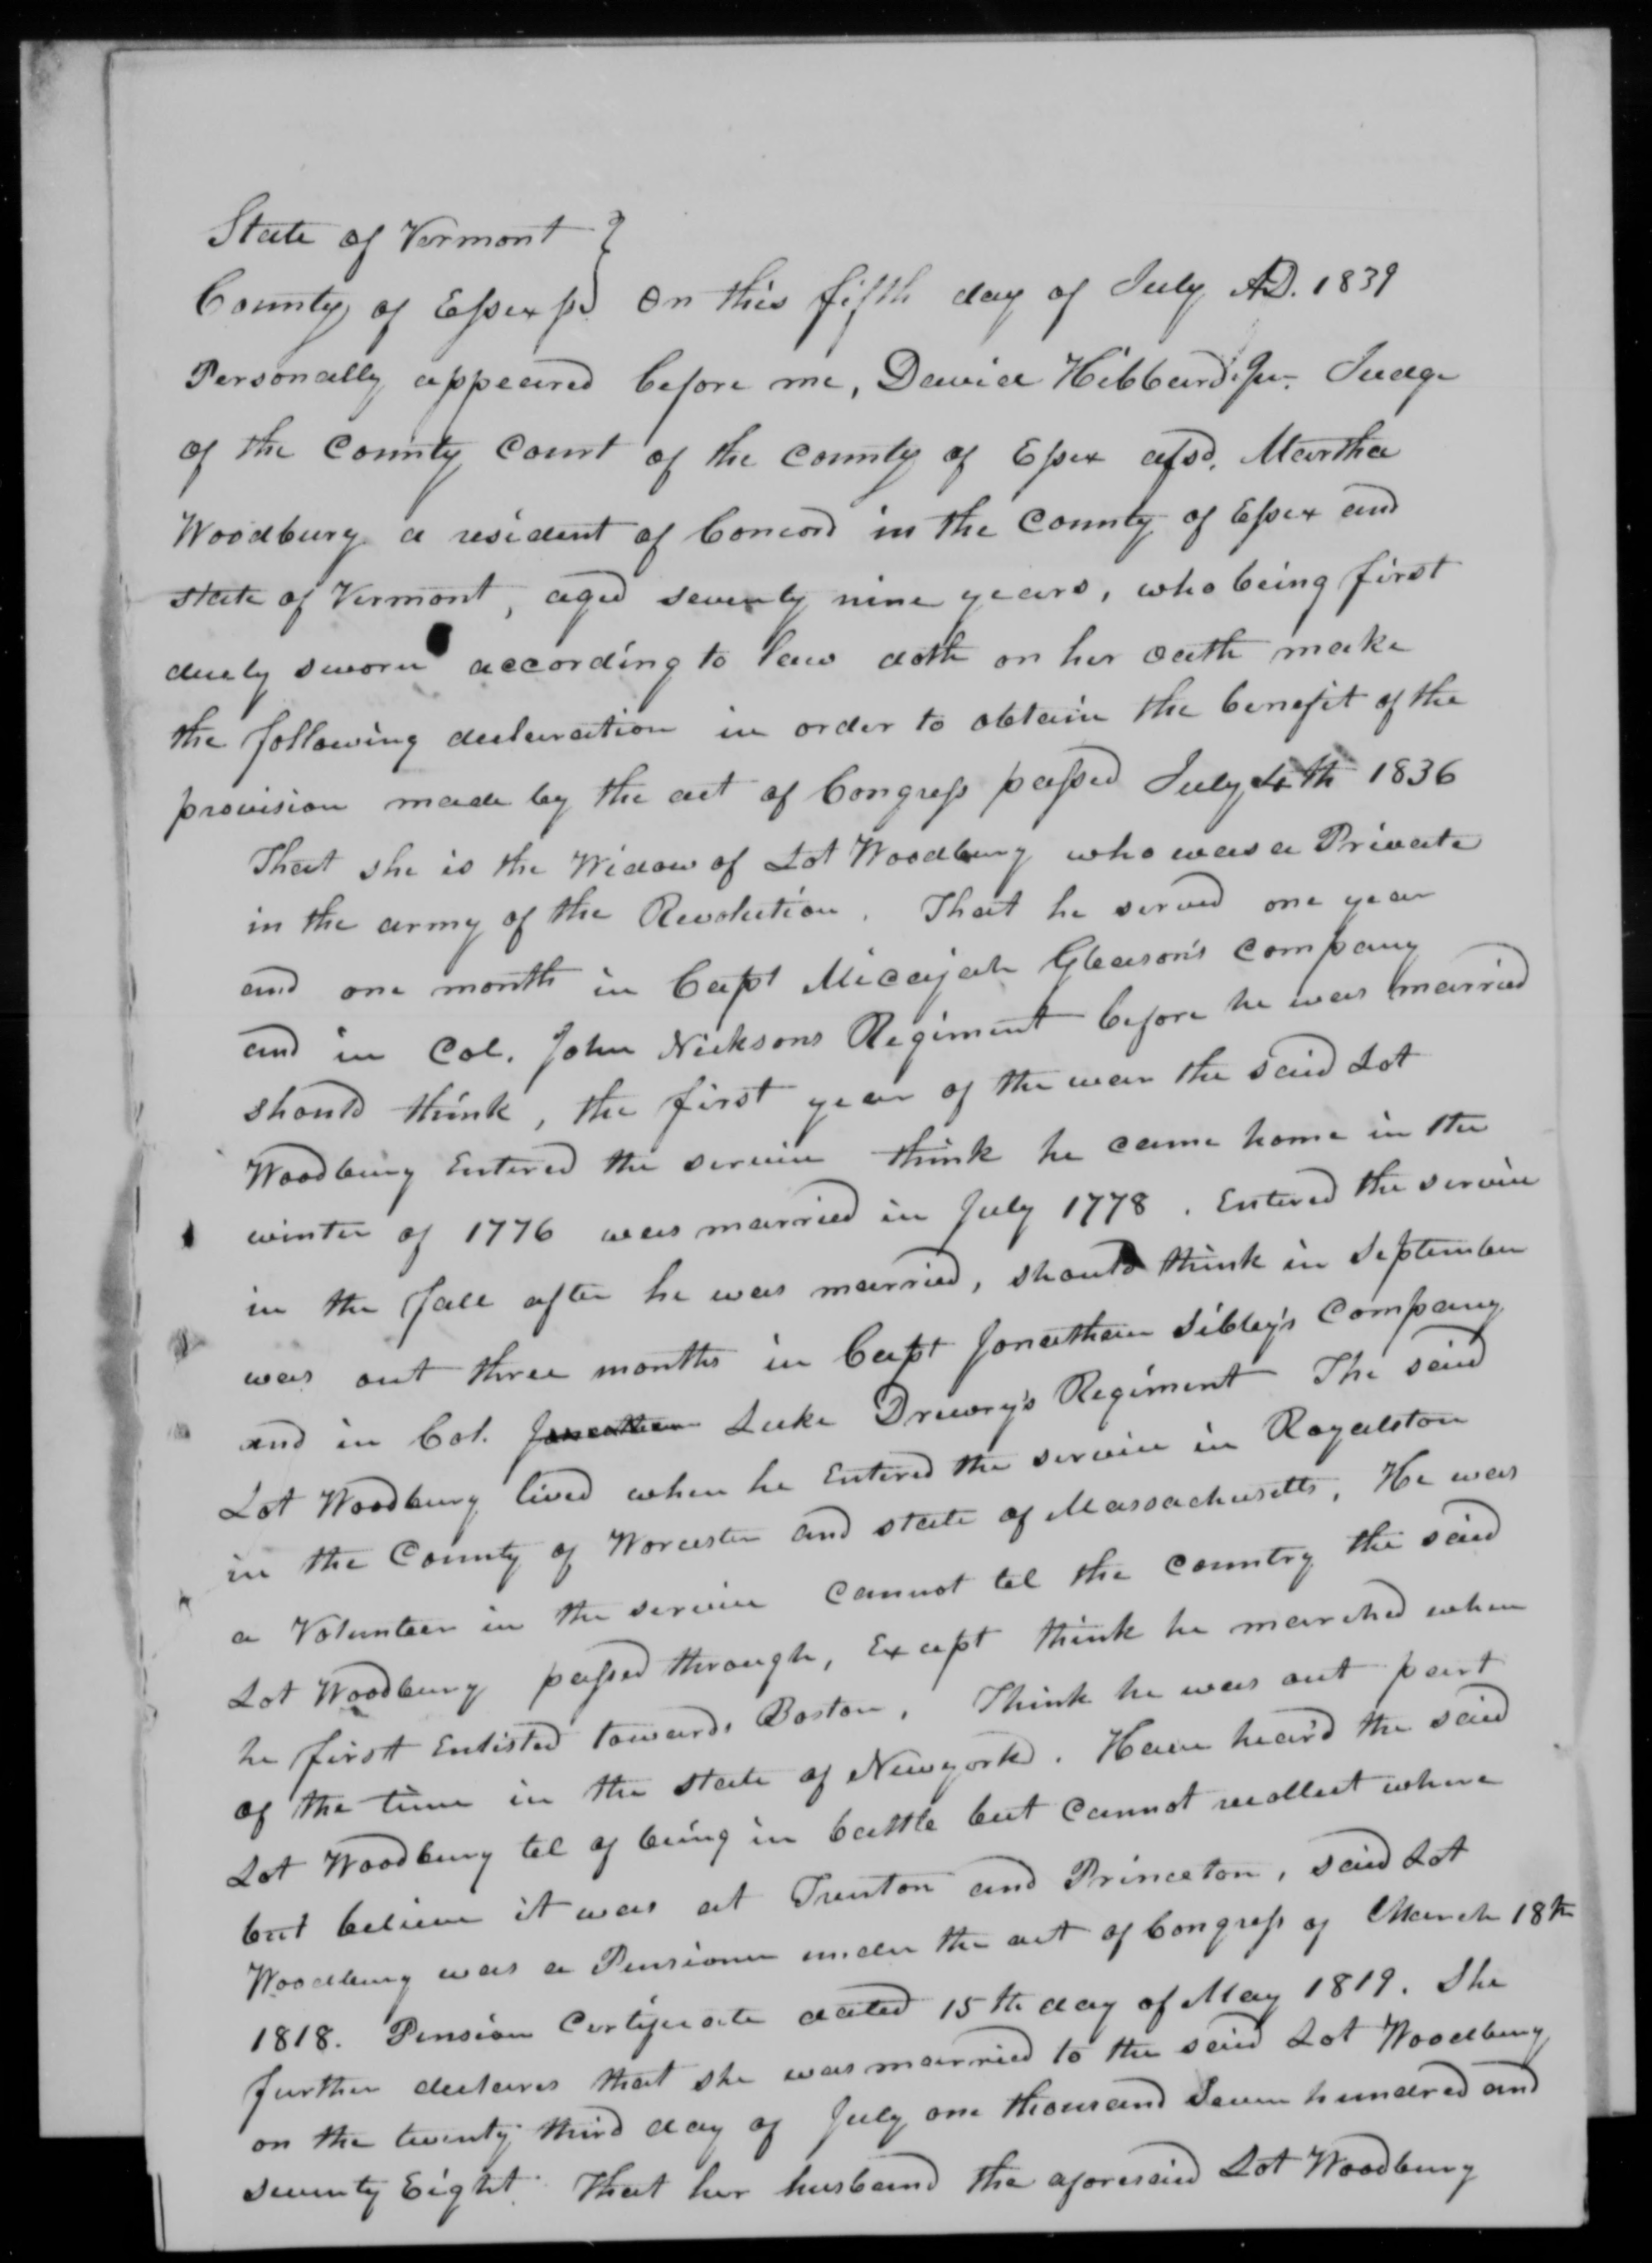 State of Vermont }
County of Essex ss } On this fifth day of July AD. 1839
Personally appeared before me, David Hibbard Jr. Judge
of the County Court of the County of Essex afsd. Martha
Woodbury a resident of Concord in the County of Essex and
state of Vermont, aged seventy nine years, who being first
duely sworn according to law doth on her oath make
the following declaration in order to obtain the benefit of the
provision made by the act of Congress passed July 4th 1836
That she is the Widow of Lot Woodbury who was a Private
in the army of the Revolution. That he served one year
and one month in Capt Micajah Gleason's Company
and in Col. John Nicksons Regiment before he was married
should think, the first year of the war the said Lot
Woodbury Entered the service think he came home in the
winter of 1776 was married in July 1778. Entered the service
in the fall after he was married, should think in September
was out three months in Capt Jonathan Sibley's Company
and in Col. Jonathan Luke Drewry's Regiment The said
Lot Woodbury lived when he Entered the service in Royalston
in the County of Worcester and state of Massachusetts, He was
a Volunteer in the service cannot tel the country the said
Lot Woodbury passed through, Except think he marched when
he first Enlisted towards Boston, Think he was out part
of the time in the state of Newyork. Have heard the said
Lot Woodbury tel of being in battle but cannot recollect where
but believe it was at Trenton and Princeton, said Lot
Woodbury was a Pensioner under the act of Congress of March 18th
1818. Pension Certificate dated 15th day of May 1819. She
further declares that she was married to the said Lot Woodbury
on the twenty third day of July one thousand Seven hundred and
seventy Eight. That her husband the aforesaid Lot Woodbury